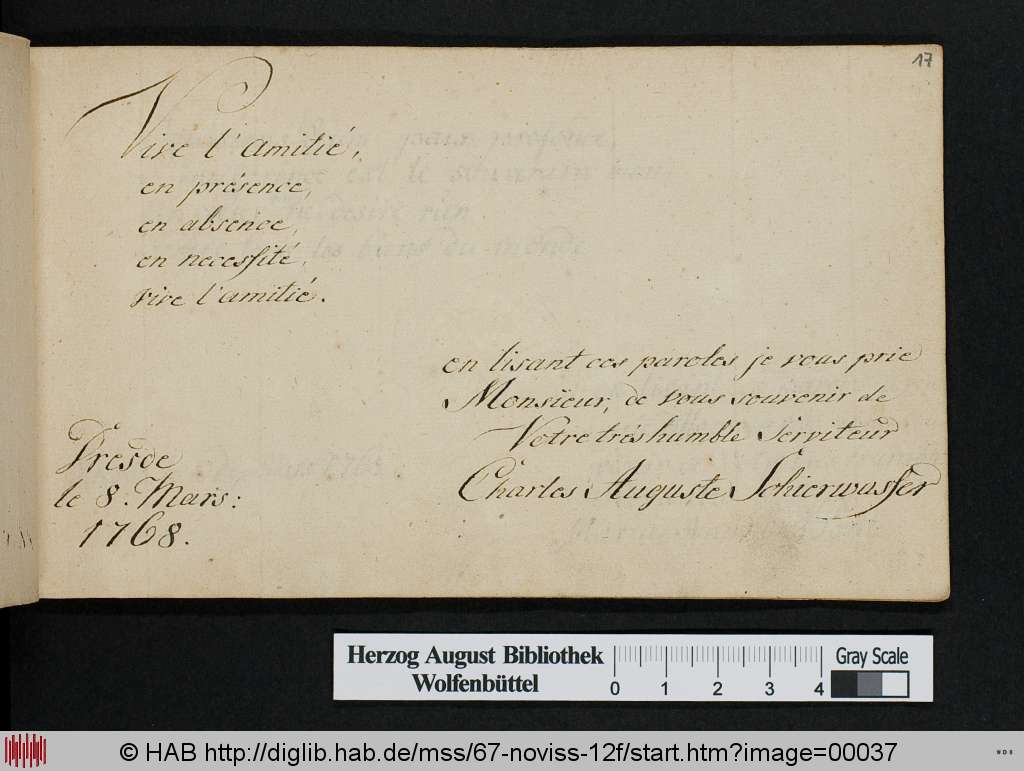 17
Vive l'amitié,
en présence,
en absence,
en necessité,
vive l'amitié.
en lisant ces paroles je vous prie
Monsieur, de vous souvenir de
Votre trés humble Serviteur
Charles Auguste Schierwasser
Dresde
le 8. Mars:
1768.
Herzog August Bibliothek
Wolfenbüttel
0 1 2 3 4
Gray Scale
© HAB http://diglib.hab.de/mss/67-noviss-12f/start.htm?image=00037
WDB